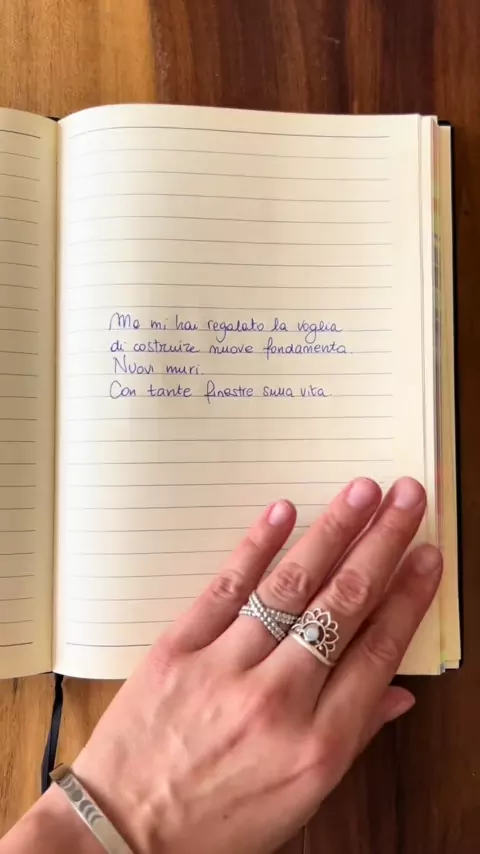 Ma mi hai regalato la voglia
di costruire nuove fondamenta.
Nuovi muri.
Con tante finestre sulla vita.